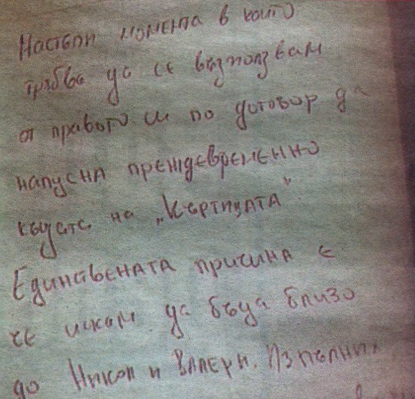 Настъпи момента в който
трябва да се възползвам
от правото си по договор да
напусна преждевременно
къщата на „Къртицата".
Единствената причина е
че искам да бъда близо
до Никол и Валери. Изпълних